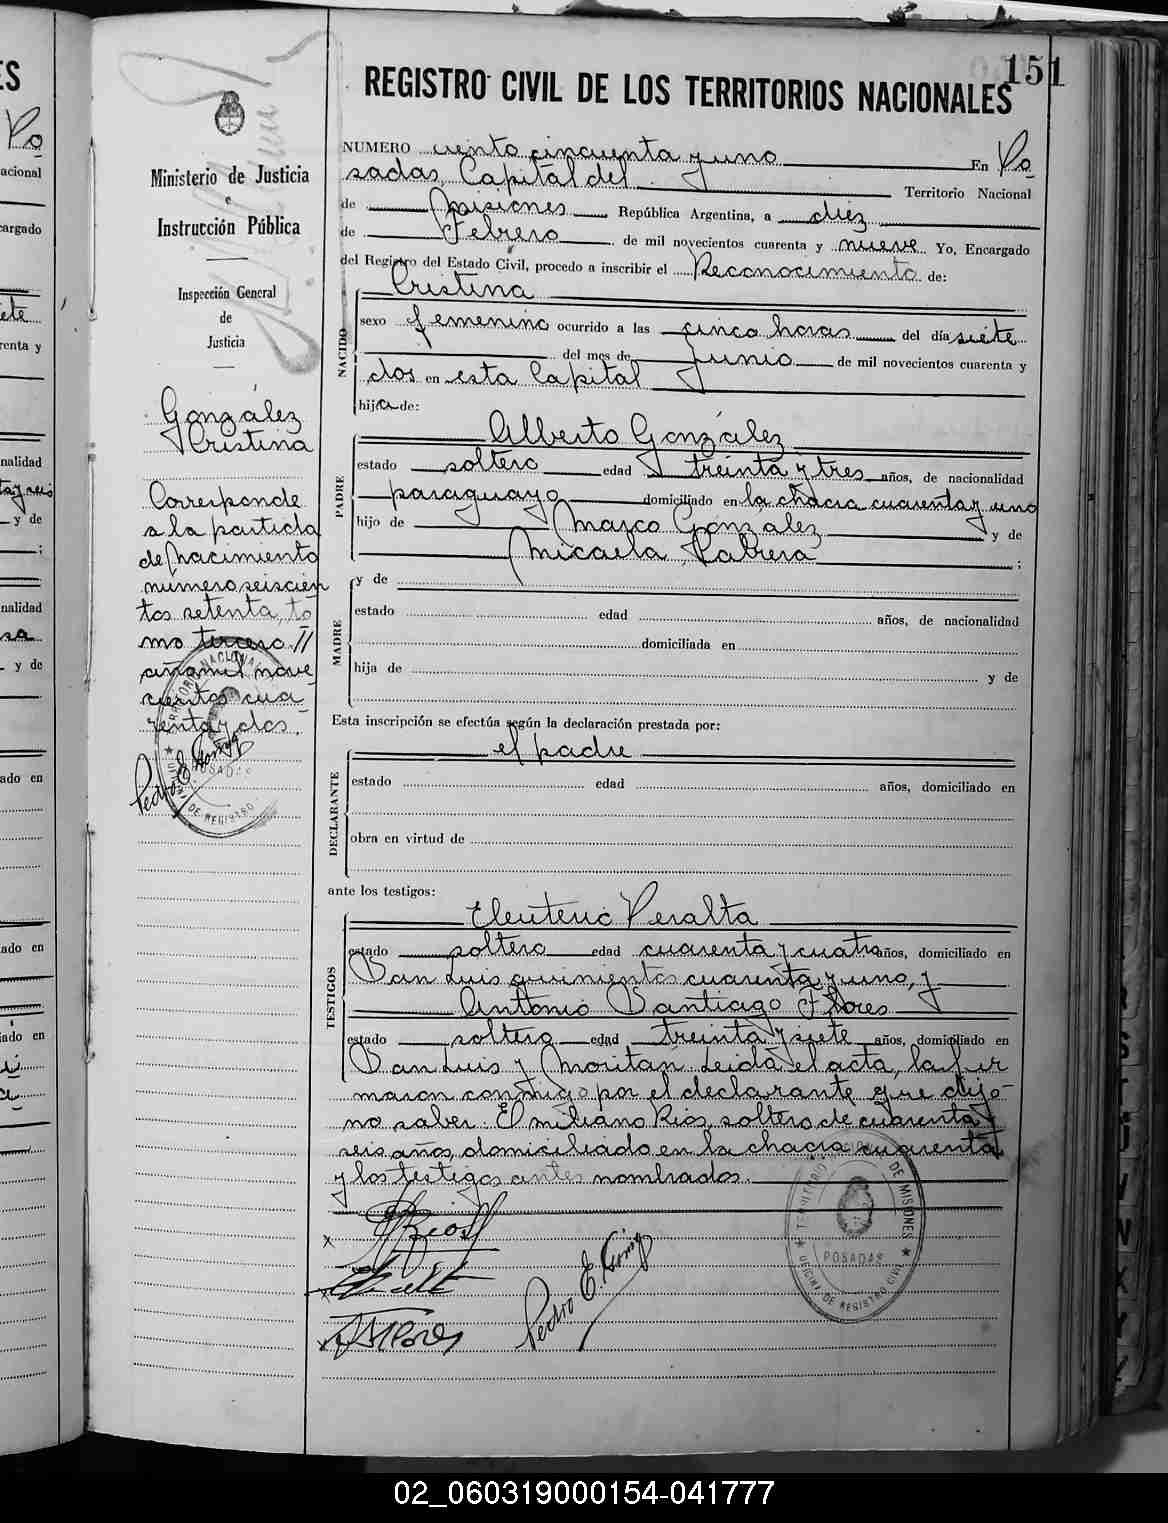 151
REGISTRO CIVIL DE LOS TERRITORIOS NACIONALES
Ministerio de Justicia
e
Instrucción Pública
Inspección General
de
Justicia
Gonzalez
Cristina
Corresponde
a la partida
de Nacimiento
numero seiscien
tos setenta, to
mo tercero II
año mil nove
cientos cua
renta y dos.
NUMERO ciento cincuenta y uno En Po
sadas, Capital del Territorio Nacional
de Misiones República Argentina, a diez
de Febrero de mil novecientos cuarenta y nueve Yo, Encargado
del Registro del Estado Civil, procedo a inscribir el Reconocimiento de:
NACIDO
Cristina
sexo femenino ocurrido a las cinco horas del día siete
del mes de Junio de mil novecientos cuarenta y
dos en esta Capital
hija de:
PADRE
Alberto González
estado soltero edad treinta y tres años, de nacionalidad
paraguayo domiciliado en la chacra cuarenta y uno
hijo de Marco González y de
Micaela Cabrera ;
MADRE
y de
estado edad años, de nacionalidad
domiciliada en
hija de y de
Esta inscripción se efectúa según la declaración prestada por:
DECLARANTE
el padre
estado edad años, domiciliado en
obra en virtud de
ante los testigos:
TESTIGOS
Eleuterio Peralta
estado soltero edad cuarenta y cuatro años, domiciliado en
San Luis quinientos cuarenta y uno, y
Antonio Santiago Flores
estado soltero edad treinta y siete años, domiciliado en
San Luis y Moritan. Leida el acta, la fir
maron conmigo por el declarante que dijo
no saber: Emiliano Rios, soltero de cuarenta y
seis años, domiciliado en la chacra cuarenta
y los testigos antes nombrados.
TERRITORIO NACIONAL DE MISIONES
POSADAS
OFICINA DE REGISTRO CIVIL
02_060319000154-041777